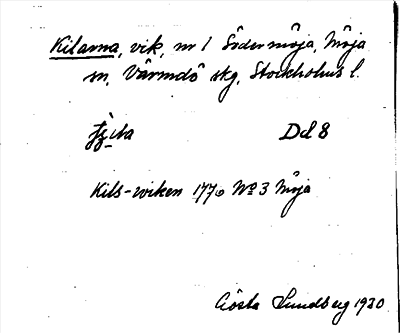 Kilarna, vik, nr 1 Södermöja, Möja
sn, Värmdö skg, Stockholms l.
Dd 8
Kils-wiken 1776 No 3 Möja
Gösta Lundberg 1930